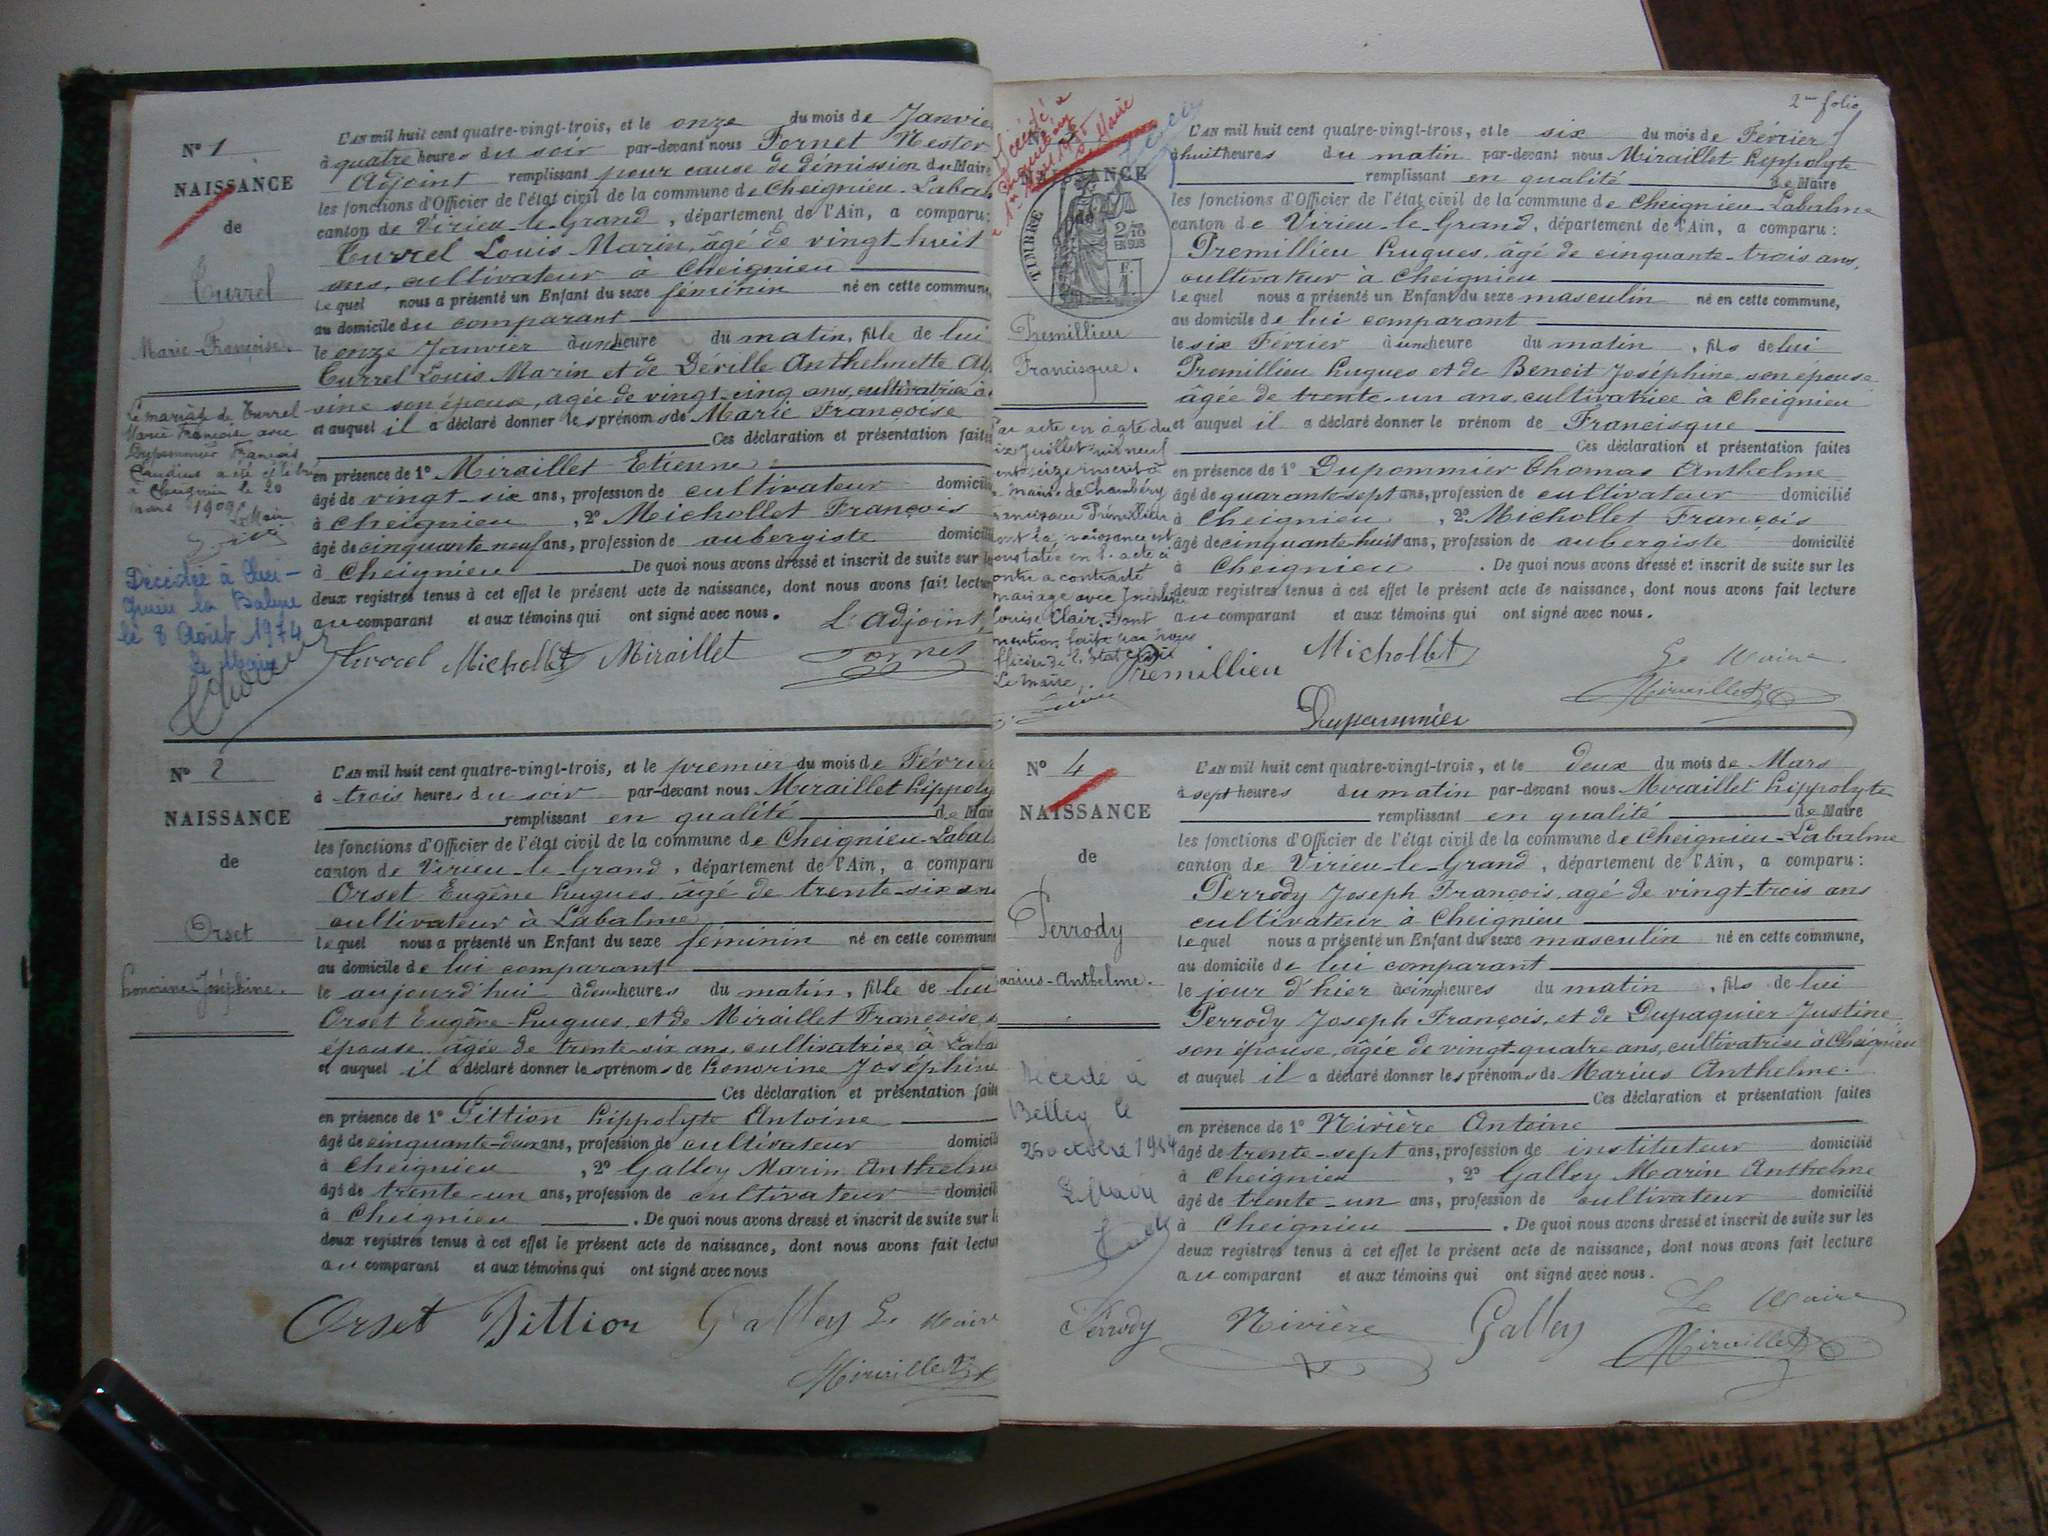 N° 1
NAISSANCE
de
Turrel
Marie-Françoise.
Le mariage de Turrel
Marie Françoise avec
Dupommier François
Claudius a été célébré
à Cheignieu le 20
mars 1909
Le Maire
Décédée à Chei-
gnieu la Balme
le 8 Août 1974
Le Maire
L'AN mil huit cent quatre-vingt-trois, et le onze du mois de Janvie
à quatre heures du soir par-devant nous Fornet Nestor
Adjoint remplissant pour cause de démission du Maire
les fonctions d'Officier de l'état civil de la commune de Cheignieu-Labal
canton de Virieu-le-Grand, département de l'Ain, a comparu:
Turrel Louis Marin, âgé de vingt huit
ans, cultivateur à Cheignieu
lequel nous a présenté un Enfant du sexe féminin né en cette commune,
au domicile du comparant
le onze Janvier à une heure du matin, fille de lui
Turrel Louis Marin et de Déville Anthelmette Al
sine son épouse, agée de vingt-cinq ans, cultivatrice à
et auquel il a déclaré donner les prénoms de Marie Françoise
Ces déclaration et présentation faites
en présence de 1° Miraillet Etienne
âgé de vingt-six ans, profession de cultivateur domicili
à Cheignieu, 2° Michollet François
âgé de cinquante neuf ans, profession de aubergiste domicili
à Cheignieu. De quoi nous avons dressé et inscrit de suite sur le
deux registres tenus à cet effet le présent acte de naissance, dont nous avons fait lectur
au comparant et aux témoins qui ont signé avec nous.
L'Adjoint,
Michollet Miraillet Fornet
N° 2
NAISSANCE
de
Orset
honorine-Joséphine.
L'AN mil huit cent quatre-vingt-trois, et le premier du mois de Févrie
à trois heures du soir par-devant nous Miraillet hippoly
remplissant en qualité de Mai
les fonctions d'Officier de l'état civil de la commune de Cheignieu-Labal
canton de Virieu-le-Grand, département de l'Ain, a comparu
Orset Eugène hugues, âgé de trente-six ans
cultivateur à Labalme
lequel nous a présenté un Enfant du sexe féminin né en cette commun
au domicile de lui comparant
le aujourd'hui à deux heures du matin, fille de lui
Orset Eugène-hugues, et de Miraillet Françoise, s
épouse, agée de trente-six ans, cultivatrice à Laba
et auquel il a déclaré donner les prénoms de honorine Joséphine
Ces déclaration et présentation faite
en présence de 1° Pittion hippolyte Antoine
âgé de cinquante-deux ans, profession de cultivateur domicili
à Cheignieu, 2° Galley Marin Anthelme
âgé de trente-un ans, profession de cultivateur domicil
à Cheignieu. De quoi nous avons dressé et inscrit de suite sur l
deux registres tenus à cet effet le présent acte de naissance, dont nous avons fait lectur
au comparant et aux témoins qui ont signé avec nous
Orset Pittion Galley Le Maire
Miraillet
2me folio
N° 3
NAISSANCE
de
TIMBRE
2/10
EN SUS
Premillieu
Francisque.
L'AN mil huit cent quatre-vingt-trois, et le six du mois de Février
à huit heures du matin par-devant nous Miraillet hippolyte
remplissant en qualité de Maire
les fonctions d'Officier de l'état civil de la commune de Cheignieu-Labalme
canton de Virieu-le-Grand, département de l'Ain, a comparu:
Premillieu hugues, âgé de cinquante-trois ans,
cultivateur à Cheignieu
lequel nous a présenté un Enfant du sexe masculin né en cette commune,
au domicile de lui comparant
le six Février à une heure du matin, fils de lui
Premillieu hugues et de Benoit Joséphine, son epouse
âgée de trente-un ans, cultivatrice à Cheignieu
et auquel il a déclaré donner le prénom de Francisque
Ces déclaration et présentation faites
en présence de 1° Dupommier Thomas Anthelme
âgé de quarante-sept ans, profession de cultivateur domicilié
à Cheignieu, 2° Michollet François
âgé de cinquante-huit ans, profession de aubergiste domicilié
à Cheignieu. De quoi nous avons dressé et inscrit de suite sur les
deux registres tenus à cet effet le présent acte de naissance, dont nous avons fait lecture
au comparant et aux témoins qui ont signé avec nous.
ar acte en date du
ix Juillet mil neuf
ent seize inscrit à
mairie de Chambéry
rancisque Prémillieu
ont la naissance est
onstatée en l'acte ci
ontre a contracté
mariage avec
Louise Clair. Dont
mention faite par nous
fficier de l'Etat Civil
Le Maire,
Premillieu Michollet Le Maire
Miraillet
Dupommier
N° 4
NAISSANCE
de
Perrody
arius-Anthelme.
Décédé à
Belley le
26 octobre 19
Le Maire
L'AN mil huit cent quatre-vingt-trois, et le deux du mois de Mars
à sept heures du matin par-devant nous Miraillet hippolyte
remplissant en qualité de Maire
les fonctions d'Officier de l'état civil de la commune de Cheignieu-Labalme
canton de Virieu-le-Grand, département de l'Ain, a comparu:
Perrody Joseph François, agé de vingt-trois ans
cultivateur à Cheignieu
lequel nous a présenté un Enfant du sexe masculin né en cette commune,
au domicile de lui comparant
le jour d'hier à cinq heures du matin, fils de lui
Perrody Joseph François, et de Dupaquier Justine
son épouse, âgée de vingt-quatre ans, cultivatrice à Cheignieu
et auquel il a déclaré donner les prénoms de Marius Anthelme.
Ces déclaration et présentation faites
en présence de 1° Nivière Antoine
âgé de trente-sept ans, profession de instituteur domicilié
à Cheignieu, 2° Galley Marin Anthelme
âgé de trente-un ans, profession de cultivateur domicilié
à Cheignieu. De quoi nous avons dressé et inscrit de suite sur les
deux registres tenus à cet effet le présent acte de naissance, dont nous avons fait lecture
au comparant et aux témoins qui ont signé avec nous.
Perrody Nivière Galley Le Maire
Miraillet